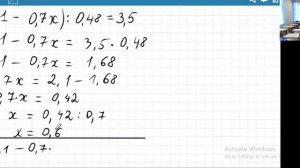 1 - 0,7x) : 0,48 = 3,5
1 - 0,7x = 3,5 · 0,48
1 - 0,7x = 1,68
7x = 2,1 - 1,68
,7·x = 0,42
x = 0,42 : 0,7
x = 0,6
,1 - 0,7·
Activate Windows
Go to Settings to activate